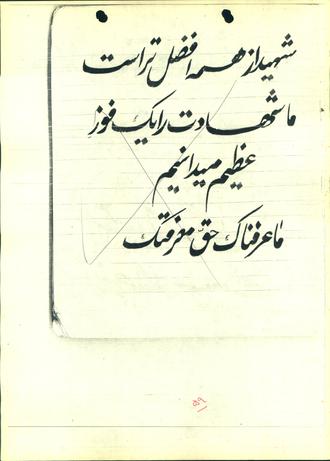 شهید از همه افضل تر است
ما شهادت را یک فوز
عظیم میدانیم
ما عرفناک حقّ معرفتک
۵۹